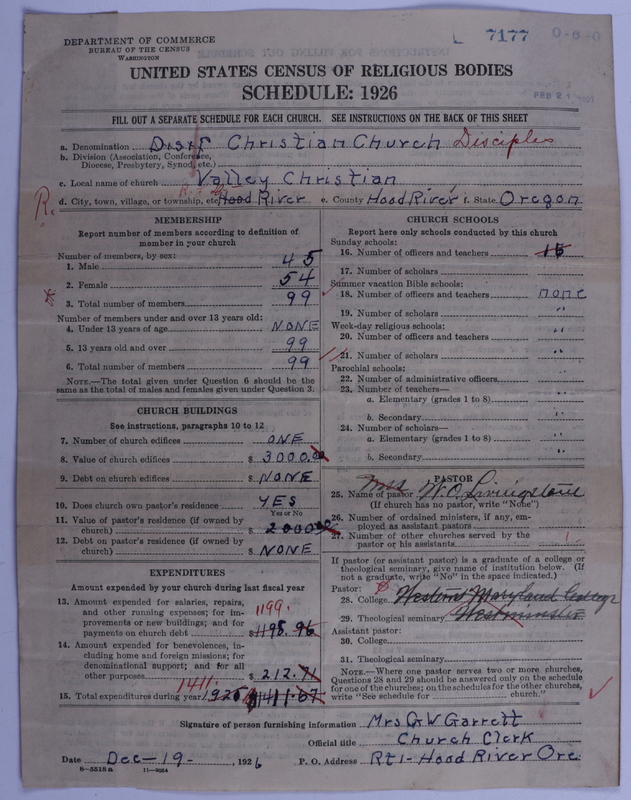 7177
0-6-0
DEPARTMENT OF COMMERCE
BUREAU OF THE CENSUS
WASHINGTON
FEB 21
UNITED STATES CENSUS OF RELIGIOUS BODIES
SCHEDULE: 1926
FILL OUT A SEPARATE SCHEDULE FOR EACH CHURCH. SEE INSTRUCTIONS ON THE BACK OF THIS SHEET
a. Denomination Christian Church Disciples
b. Division (Association, Conference, Diocese, Presbytery, Synod, etc.)
c. Local name of church Valley Christian
R.
d. City, town, village, or township, etc. Hood River e. County Hood River f. State Oregon
MEMBERSHIP
Report number of members according to definition of
member in your church
Number of members, by sex:
1. Male 45
2. Female 54
3. Total number of members 99
Number of members under and over 13 years old:
4. Under 13 years of age NONE
5. 13 years old and over 99
6. Total number of members 99
NOTE.—The total given under Question 6 should be
same as the total of males and females given under Question 3.
CHURCH BUILDINGS
See instructions, paragraphs 10 to 12
7. Number of church edifices ONE
8. Value of church edifices $ 3000.00
9. Debt on church edifices $ NONE
10. Does church own pastor's residence YES
Yes or No
11. Value of pastor's residence (if owned by
church) $ 2000.00
12. Debt on pastor's residence (if owned by
church) $ NONE
EXPENDITURES
Amount expended by your church during last fiscal year
13. Amount expended for salaries, repairs,
and other running expenses; for im-
provements or new buildings; and for
payments on church debt 1199. $1198.96
14. Amount expended for benevolences, in-
cluding home and foreign missions; for
denominational support; and for all
other purposes $ 212.71
1411.
15. Total expenditures during year 1926 $1411.67
CHURCH SCHOOLS
Report here only schools conducted by this church
Sunday schools:
16. Number of officers and teachers 15
17. Number of scholars
Summer vacation Bible schools:
18. Number of officers and teachers none
19. Number of scholars "
Week-day religious schools:
20. Number of officers and teachers "
21. Number of scholars "
Parochial schools:
22. Number of administrative officers "
23. Number of teachers—
a. Elementary (grades 1 to 8) "
b. Secondary "
24. Number of scholars—
a. Elementary (grades 1 to 8) "
b. Secondary "
PASTOR
25. Name of pastor W. O. Livingstone
(If church has no pastor, write "None")
26. Number of ordained ministers, if any, em-
ployed as assistant pastors
27. Number of other churches served by the
pastor or his assistants 1
If pastor (or assistant pastor) is a graduate of a college or
theological seminary, give name of institution below. (If
not a graduate, write "No" in the space indicated.)
Pastor:
28. College Western Maryland College
29. Theological seminary Westminster
Assistant pastor:
30. College
31. Theological seminary
NOTE.—Where one pastor serves two or more churches,
Questions 28 and 29 should be answered only on the schedule
for one of the churches; on the schedules for the other churches,
write "See schedule for church."
Signature of person furnishing information Mrs G W Garrett
Official title Church Clerk
Date Dec-19-, 1926 P. O. Address Rt1-Hood River Ore.
8-5518a 11-9054